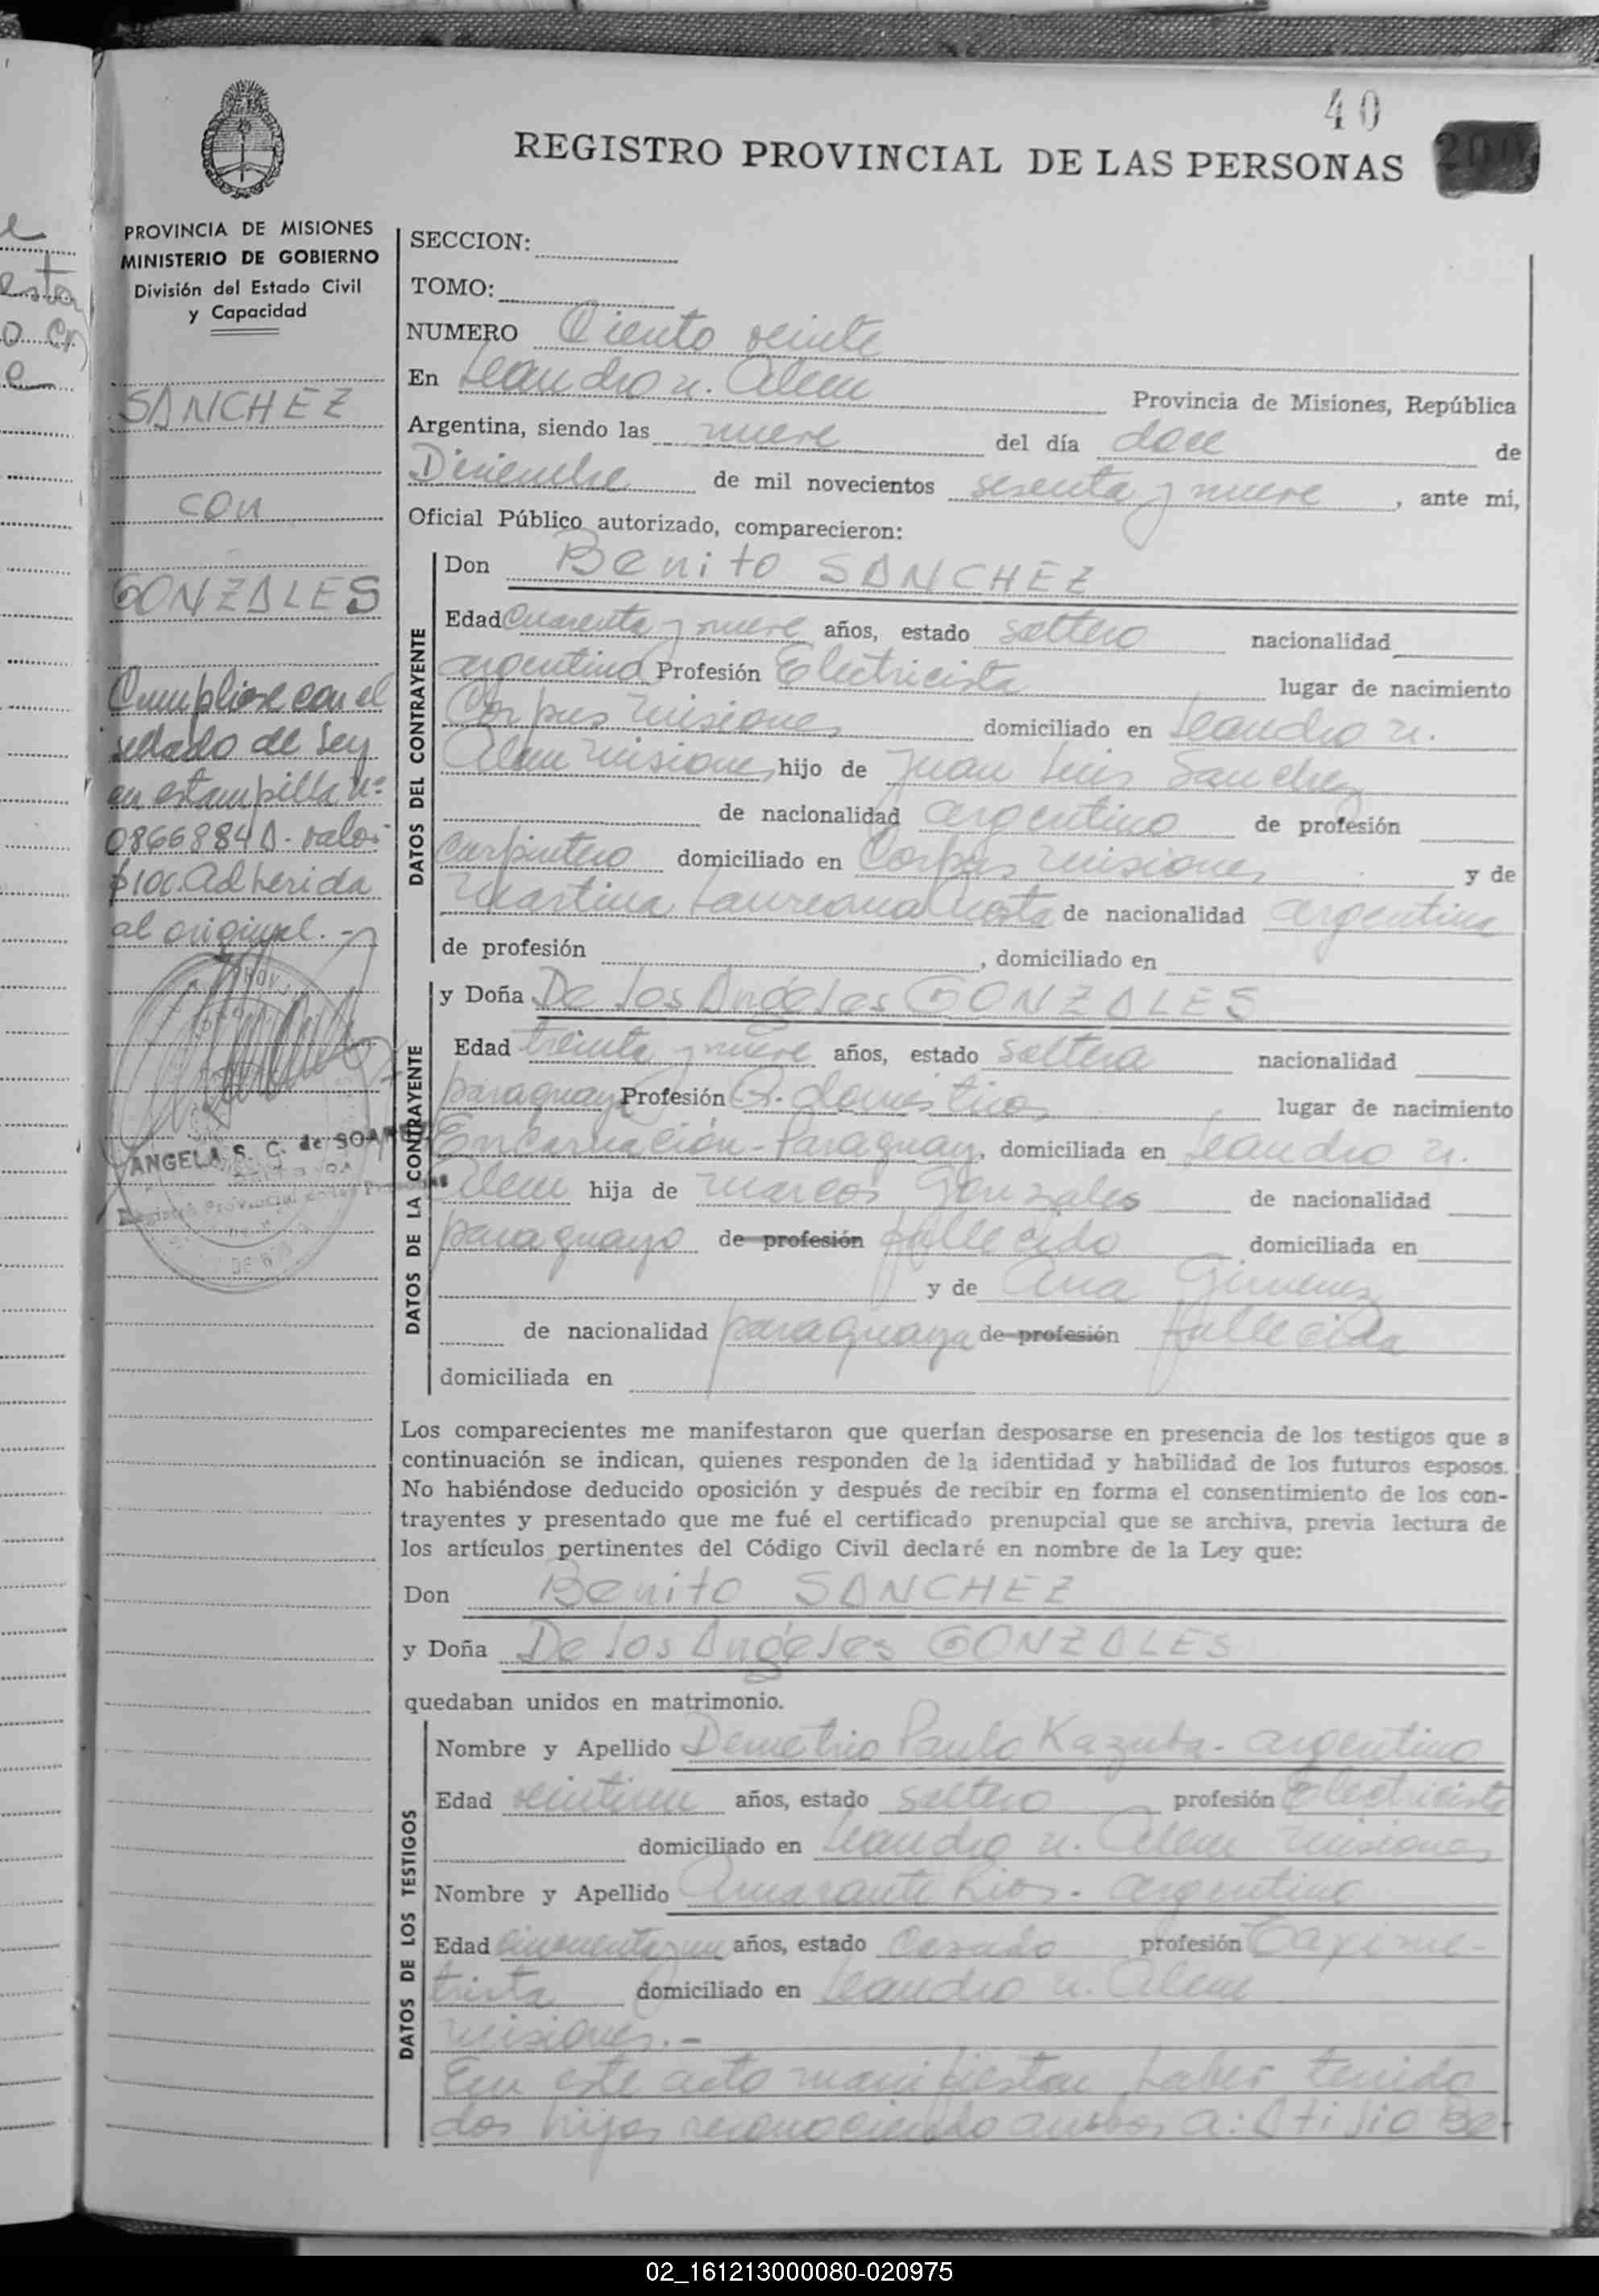 40
REGISTRO PROVINCIAL DE LAS PERSONAS
200
PROVINCIA DE MISIONES
MINISTERIO DE GOBIERNO
División del Estado Civil
y Capacidad
SANCHEZ
con
GONZALES
Cumpliose con el
sellado de Ley
en estampilla nº
0866884A. valor
$100. Adherida
al original.-
ANGELA S. C. de SOAREZ
SECCION:
TOMO:
NUMERO Ciento veinte
En Leandro n. Alem Provincia de Misiones, República
Argentina, siendo las nueve del día doce de
Diciembre de mil novecientos sesenta y nueve, ante mí,
Oficial Público autorizado, comparecieron:
DATOS DEL CONTRAYENTE
Don Benito SANCHEZ
Edad Cuarenta y nueve años, estado soltero nacionalidad
argentina Profesión Electricista lugar de nacimiento
Corpus misiones domiciliado en Leandro n.
Alem misiones, hijo de Juan Luis Sanchez
de nacionalidad argentino de profesión
Carpintero domiciliado en Corpus misiones y de
Martina Laureana de nacionalidad argentina
de profesión , domiciliado en
DATOS DE LA CONTRAYENTE
y Doña De los Angeles GONZALES
Edad treinta y nueve años, estado soltera nacionalidad
paraguaya Profesión Q. domésticos lugar de nacimiento
Encarnación - Paraguay, domiciliada en Leandro n.
Alem hija de Marcos Gonzales de nacionalidad
paraguayo de profesión fallecido domiciliada en
y de Ana Gimenez
de nacionalidad paraguaya de profesión fallecida
domiciliada en
Los comparecientes me manifestaron que querían desposarse en presencia de los testigos que a
continuación se indican, quienes responden de la identidad y habilidad de los futuros esposos.
No habiéndose deducido oposición y después de recibir en forma el consentimiento de los con-
trayentes y presentado que me fué el certificado prenupcial que se archiva, previa lectura de
los artículos pertinentes del Código Civil declaré en nombre de la Ley que:
Don Benito SANCHEZ
y Doña De los Angeles GONZALES
quedaban unidos en matrimonio.
DATOS DE LOS TESTIGOS
Nombre y Apellido Demetrio Paulo Kazuba - argentino
Edad veintiun años, estado soltero profesión Electricista
domiciliado en Leandro n. Alem misiones
Nombre y Apellido Amarante Rios - argentino
Edad cincuenta y un años, estado Casado profesión Taxime-
trista domiciliado en Leandro n. Alem
misiones.-
En este acto manifiestan haber tenido
dos hijos reconociendo ambos a: Atilio Be-
02_161213000080-020975